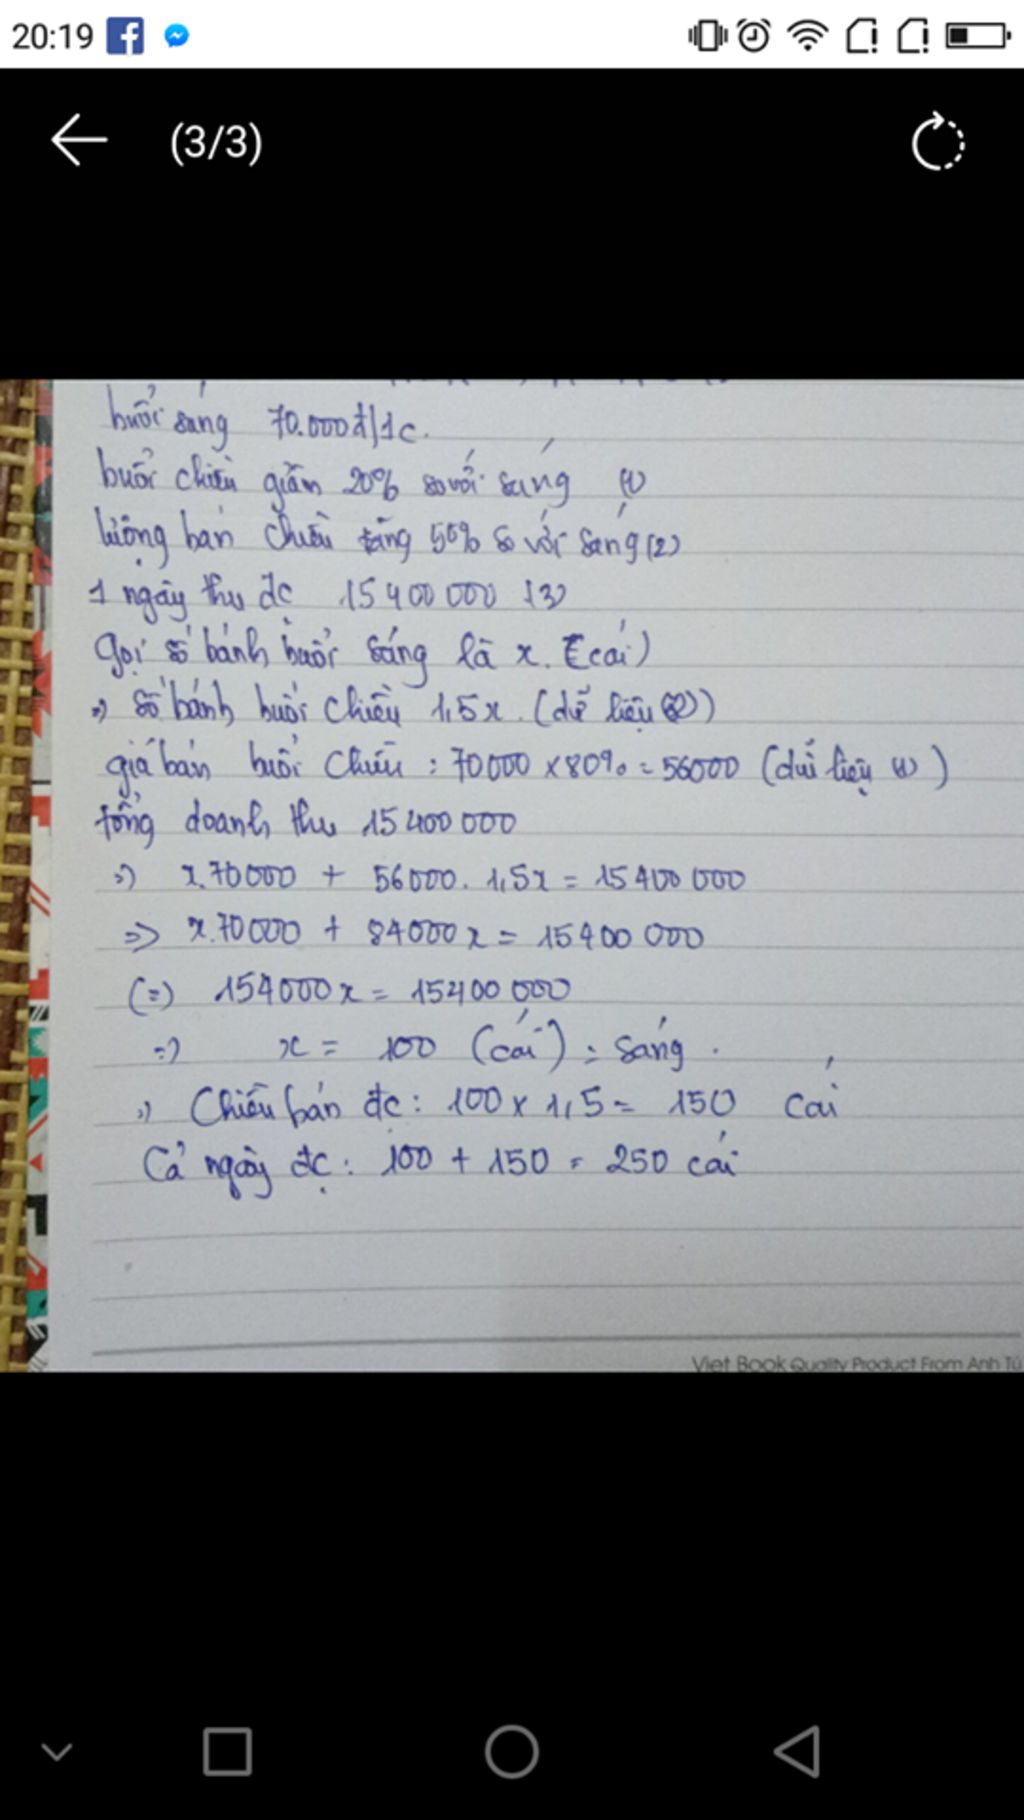 20:19
(3/3)
buổi sáng 70.000đ/1c.
buổi chiều giảm 20% so với sáng (1)
lượng bán chiều tăng 50% so với sáng (2)
1 ngày thu đc 15400000 (3)
gọi số bánh buổi sáng là x. (cái)
=> số bánh buổi chiều 1,5x. (dữ liệu (2))
giá bán buổi chiều : 70000 x 80% = 56000 (dữ liệu (1))
tổng doanh thu 15400000
=> x.70000 + 56000. 1,5x = 15400 000
=> x.70000 + 84000x = 15400 000
(=) 154000x = 15400 000
=> x = 100 (cái) : sáng.
=> Chiều bán đc: 100 x 1,5 = 150 cái
Cả ngày đc: 100 + 150 = 250 cái
Viet Book Quality Product From Anh Tú